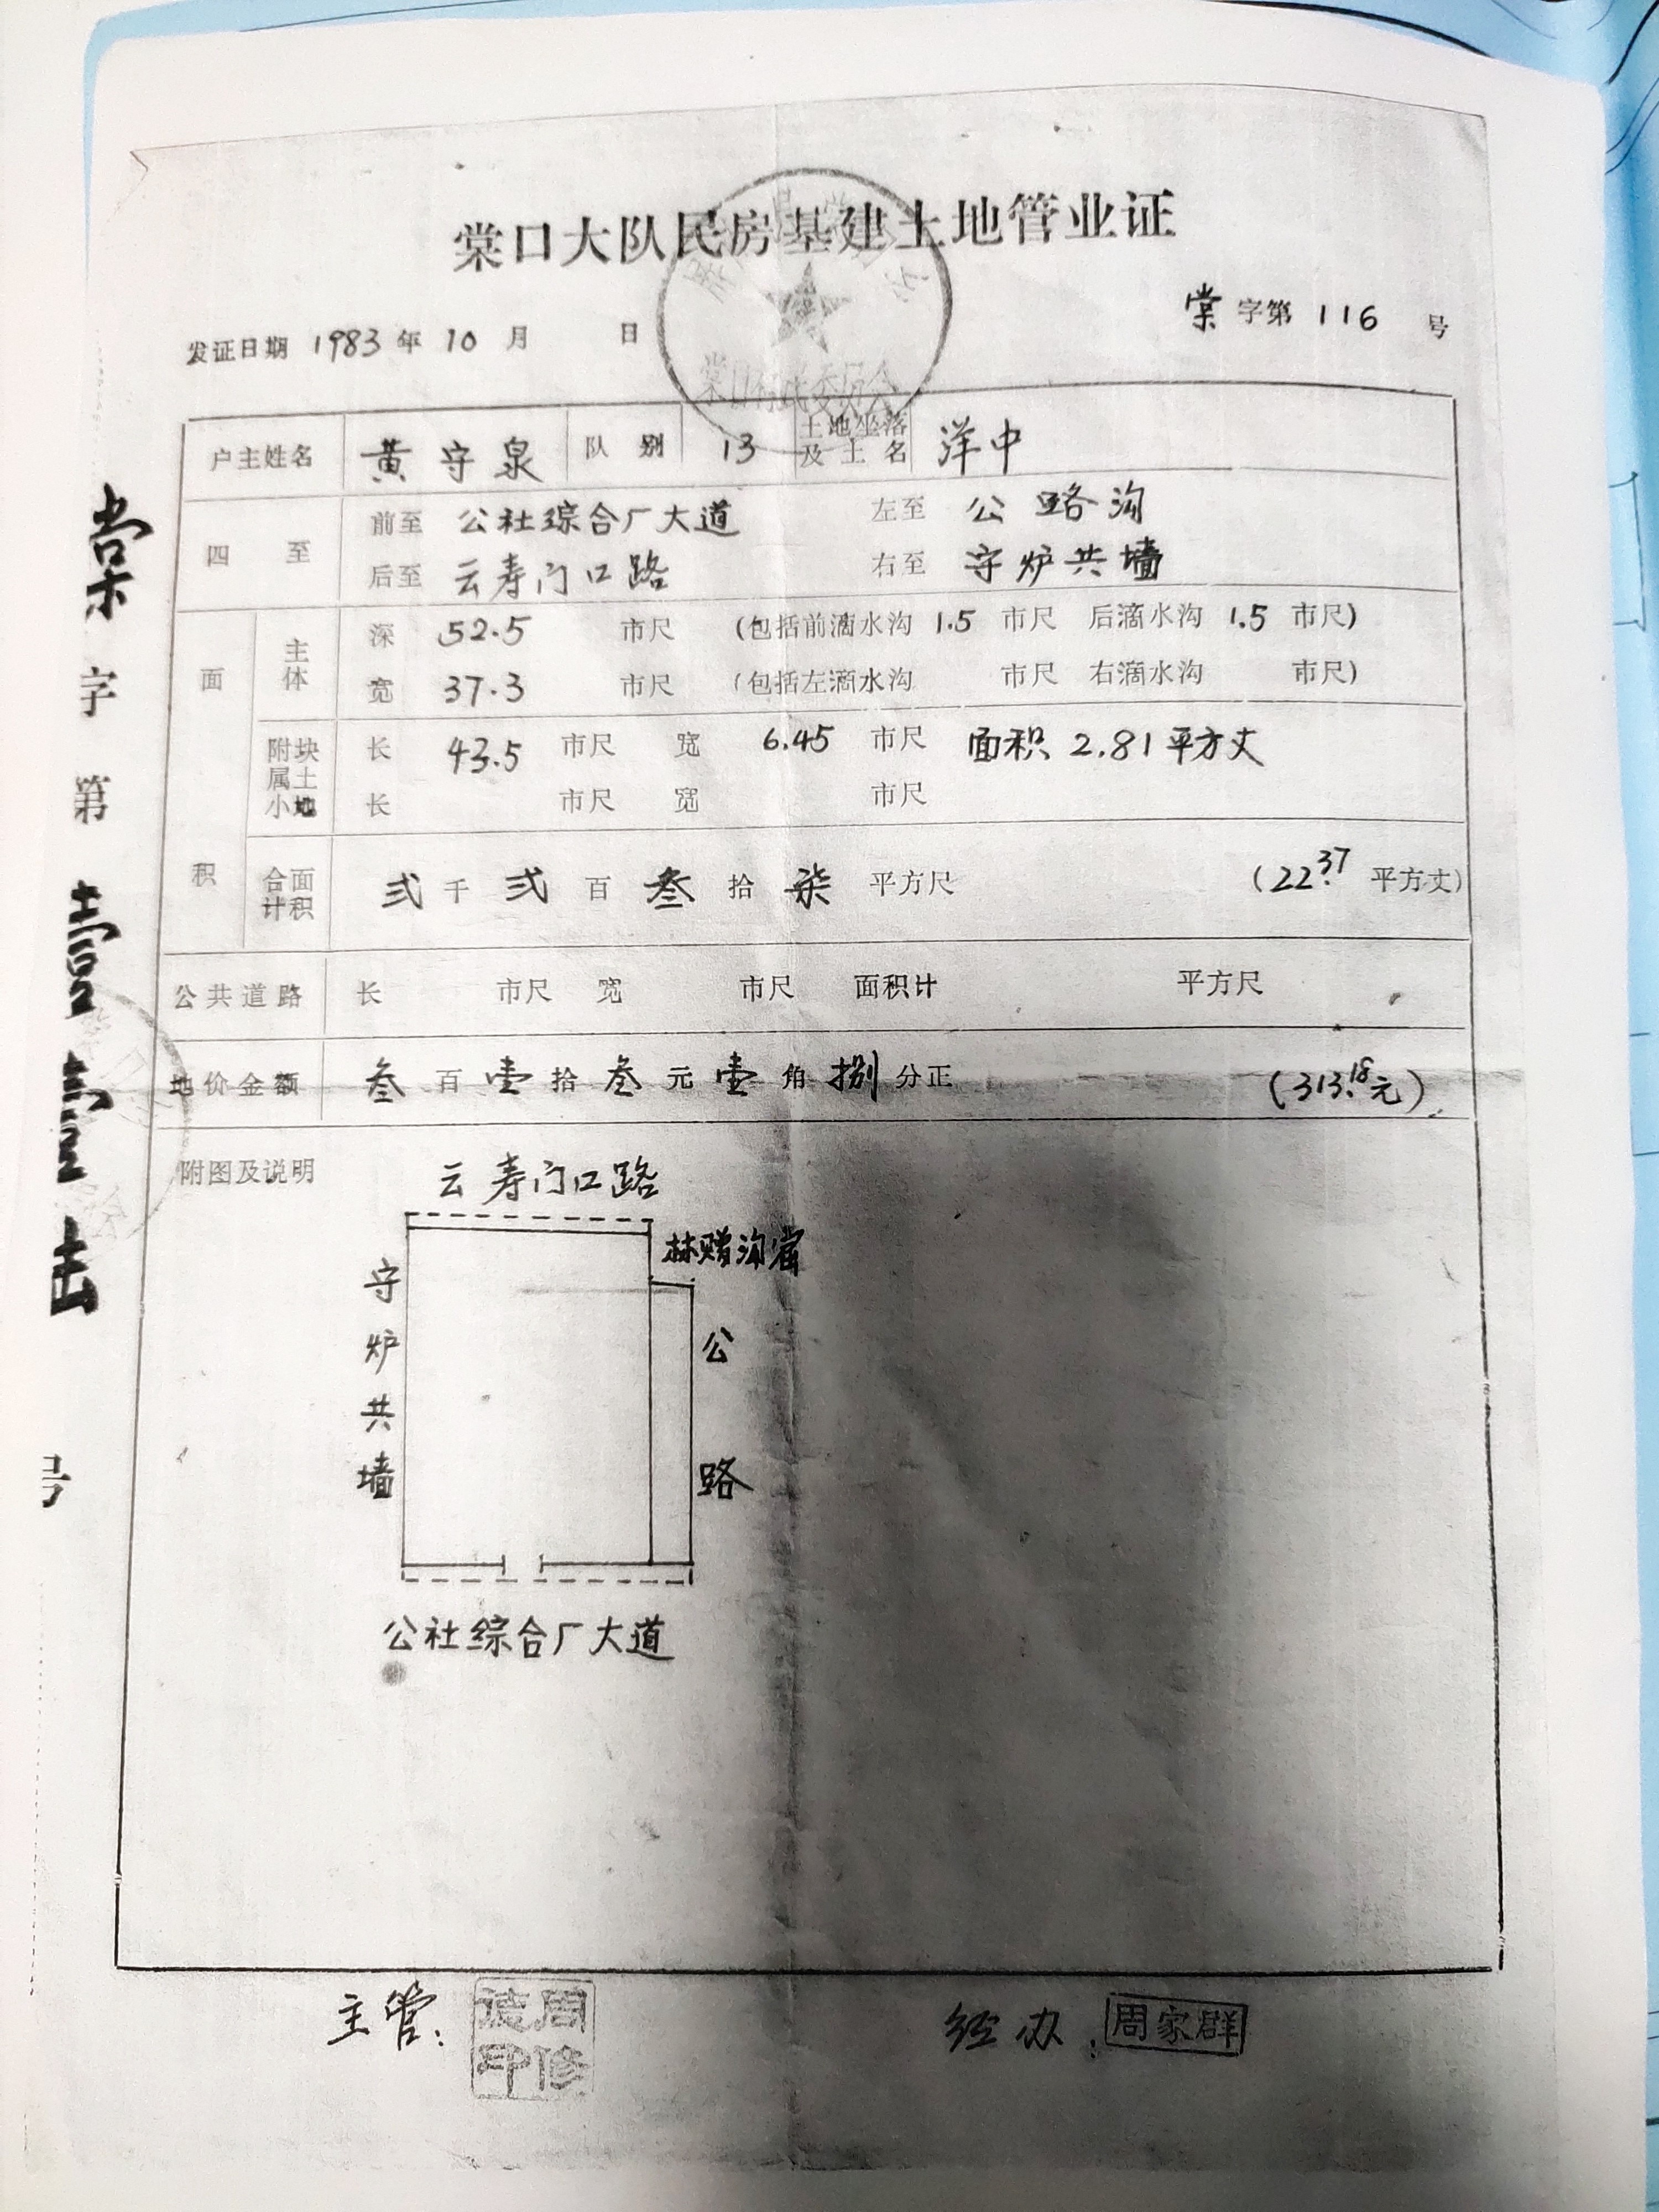 棠口大队民房基建土地管业证
发证日期 1983 年 10 月 日
棠 字第 116 号
棠口村民委员会
户主姓名 黄守泉 队别 13 土地坐落及土名 洋中
四至 前至 公社综合厂大道 左至 公路沟
后至 云寿门口路 右至 守炉共墙
面积 主体 深 52.5 市尺 (包括前滴水沟 1.5 市尺 后滴水沟 1.5 市尺)
宽 37.3 市尺 (包括左滴水沟 市尺 右滴水沟 市尺)
附属小块土地 长 43.5 市尺 宽 6.45 市尺 面积 2.81 平方丈
长 市尺 宽 市尺
合计面积 弍 千 弍 百 叁 拾 柒 平方尺 (22.37 平方丈)
公共道路 长 市尺 宽 市尺 面积计 平方尺
地价金额 叁 百 壹 拾 叁 元 壹 角 捌 分正 (313.18元)
附图及说明
云寿门口路
守炉共墙
公路
公社综合厂大道
主管:
经办: 周家群
棠字第壹壹
号